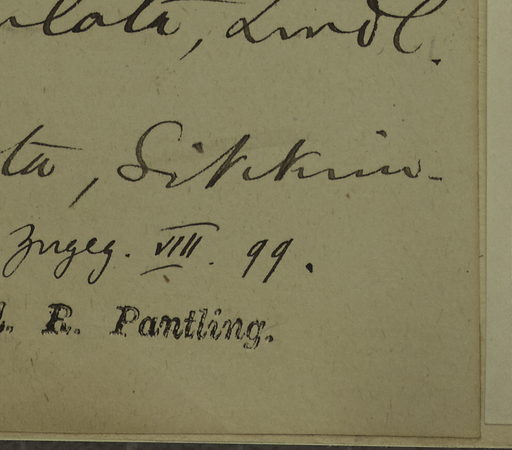 lata, Lindl.
ta, Sikkim-
Zugeg. VIII. 99.
R. Pantling.